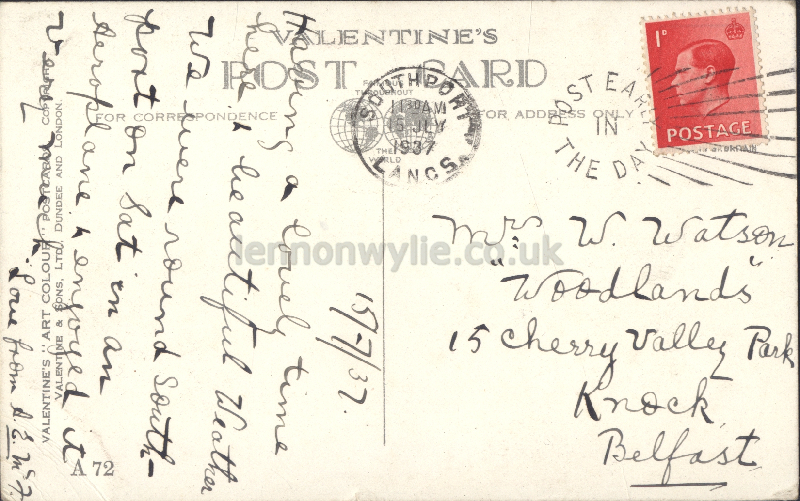 VALENTINE'S
POST CARD
FOR CORRESPONDENCE
FOR ADDRESS ONLY
FAMOUS
THROUGHOUT
THE
WORLD
SOUTHPORT
11 30 AM
15 JLY
1937
LANCS.
POST EARLY
IN
THE DAY
1D
POSTAGE
Having a lovely time
here & beautiful Weather
We were round South-
port on Sat in an
Aeroplane & enjoyed it
very much.
Love from A. E. McF.
15/7/37.
Mrs W. Watson
"Woodlands"
15 Cherry Valley Park
Knock
Belfast
VALENTINE'S "ART COLOUR" POSTCARD. COPYRIGHT.
VALENTINE & SONS, LTD. DUNDEE AND LONDON.
A 72
lennonwylie.co.uk